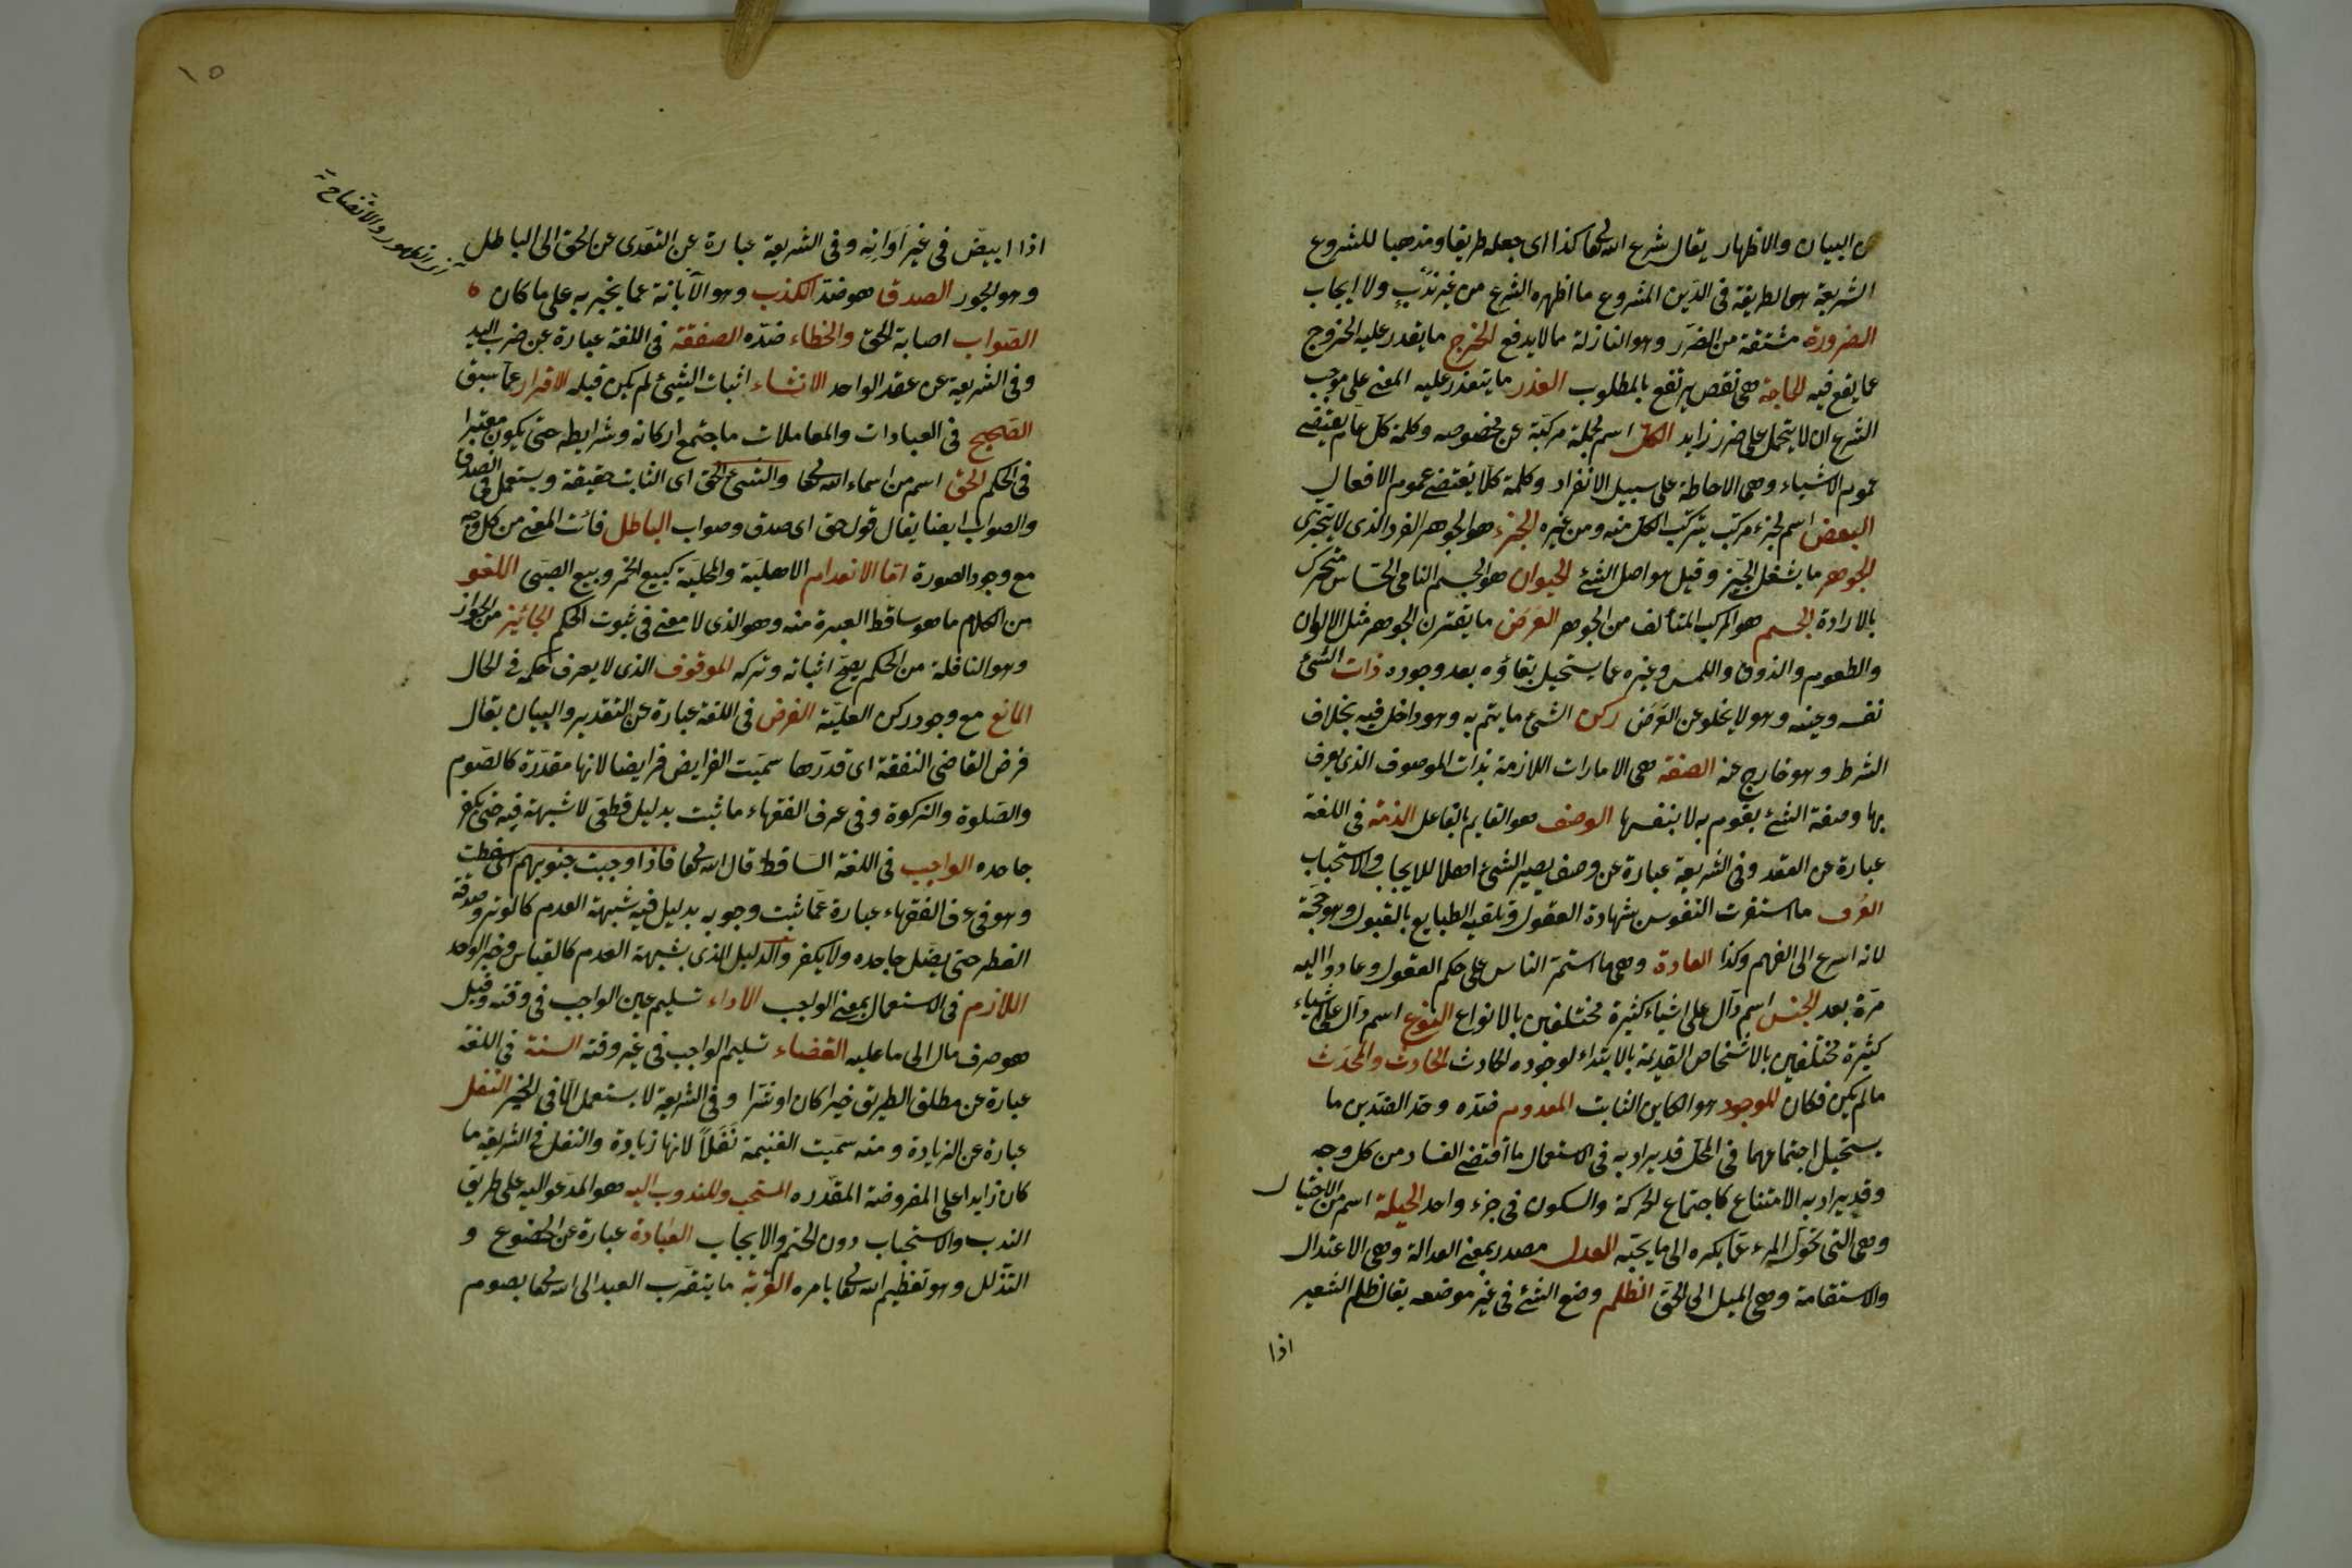 عن البيان والاظهار يقال شرع الله تعا كذا اى جعله طريقا ومذهبا للشروع
الشريعة هى الطريقة فى الدين المشروع ما اظهره الشرع من غير ندب ولا ايجاب
الضرورة مشتقة من الضرر وهو النازلة مما لا يدفع الحرج ما يقدر عليه الخروج
عما يقع فيه الحاجة هى نقص يرتفع بالمطلوب العذر ما يتعذر عليه المعنى على موجب
الشرع ان لا يتحمل على ضرر زايد الكل اسم لجملة مركبة عن مخصوصه وكلمة كل عام يقتضى
عموم الاشياء وهى الاحاطة على سبيل الانفراد وكلمة كلّا يقتضى عموم الافعال
البعض اسم لجزء مركب يتركب الكل منه ومن غيره الجزء هو الجوهر الفرد الذى لا يتجزى
الجوهر ما يشغل الحيز وقيل هو اصل الشئ الحيوان هو الجسم النامى الحساس متحرك
بالارادة الجسم هو المركب المتألف من الجوهر العرض ما يقترن الجوهر مثل الالوان
والطعوم والذوق واللمس وغيره مما يستحيل بقاؤه بعد وجوده ذات الشئ
نفسه وعينه وهو لا يخلو عن العرض ركن الشئ ما يتم به وهو داخل فيه بخلاف
الشرط وهو خارج عنه الصفة هى الامارات اللازمة بذات الموصوف الذى يعرف
بها وصفة الشئ يقوم به لا بنفسها الوصف هو القايم بالفاعل الذمة فى اللغة
عبارة عن العقد وفى الشريعة عبارة عن وصف يصير الشئ اهلا للايجاب والاستحباب
العرف ما استقرت النفوس بشهادة العقول وتلقيه الطبايع بالقبول وهو حجة
لانه اسرع الى الفهم وكذا العادة وهى ما استمر الناس على حكم العقول وعادوا اليه
مرة بعد الجنس اسم دال على اشياء كثيرة مختلفين بالانواع النوع اسم دال على اشياء
كثيرة مختلفين بالاشخاص القديمة بالابتداء لوجوده الحادث الحادث والمحدث
ما لم يكن فكان الموجود هو الكاين الثابت المعدوم ضده وحد الضدين ما
يستحيل اجتماعهما فى المحل قد يراد به فى الاستعمال ما اقتضى الفساد من كل وجه
وقد يراد به الامتناع كاجتماع الحركة والسكون فى جزء واحد الحيلة اسم من الاحتيال
وهى التى تحول المرء عما يكره الى ما يحبه العدل مصدر بمعنى العدالة وهى الاعتدال
والاستقامة وهى الميل الى الحق الظلم وضع الشئ فى غير موضعه يقال ظلم الشعير
اذا
١٥
اذا ابيض فى غير اوانه وفى الشريعة عبارة عن التعدى عن الحق الى الباطل
وهو الجور الصدق هو ضد الكذب وهو الابانة عما يخبر به على ما كان
الصواب اصابة الحق والخطاء ضده الصفقة فى اللغة عبارة عن ضرب اليد
وفى الشريعة عن عقد الواحد الانشاء اثبات الشئ لم يكن قبله الاقرار عما سبق
الصحيح فى العبادات والمعاملات ما جتمع اركانه وشرايطه حتى يكون معتبرا
فى الحكم الحق اسم من اسماء الله تعا والشئ الحق اى الثابت حقيقة ويستعمل فى الصدق
والصواب ايضا يقال قول حق اى صدق وصواب الباطل فائت المعنى من كل وجه
مع وجود الصورة اما الانعدام الاهلية والمحلية كبيع الخمر وبيع الصبى اللغو
من الكلام ما هو ساقط العبرة منه وهو الذى لا معنى فى ثبوت الحكم الجائيز من الجواز
وهو النافلة من الحكم يصح اثباته وتركه الموقوف الذى لا يعرف حكمه فى الحال
المانع مع وجود ركن العلية الفرض فى اللغة عبارة عن التقدير والبيان يقال
فرض القاضى النفقة اى قدرها سميت الفرايض فرايضا لانها مقدرة كالصوم
والصلوة والزكوة وفى عرف الفقهاء ما ثبت بدليل قطعى لا شبهة فيه حتى يكفر
جاحده الواجب فى اللغة الساقط قال الله تعا فاذا وجبت جنوبهم اى سقطت
وهو فى عرف الفقهاء عبارة عما ثبت وجوبه بدليل فيه شبهة العدم كالوتر وصدقة
الفطر حتى يضلل جاحده ولا يكفر والدليل الذى بشبهة العدم كالقياس وخبر الواحد
اللازم فى الاستعمال بمعنى الواجب الاداء تسليم عين الواجب فى وقته وقيل
هو صرف مال الى ما عليه القضاء تسليم الواجب فى غير وقته السنة فى اللغة
عبارة عن مطلق الطريق خيرا كان او شرا وفى الشريعة لا يستعمل الا فى الخير النفل
عبارة عن الزيادة ومنه سميت الغنيمة نفلا لانها زيادة والنفل فى الشريعة ما
كان زايدا على المفروضة المقدره المستحب والمندوب اليه هو المدعو اليه على طريق
الندب والاستحباب دون الحتم والايجاب العبادة عبارة عن الخضوع و
التذلل وهو تعظيم الله تعا بامره القربة ما يتقرب العبد الى الله تعا بصوم